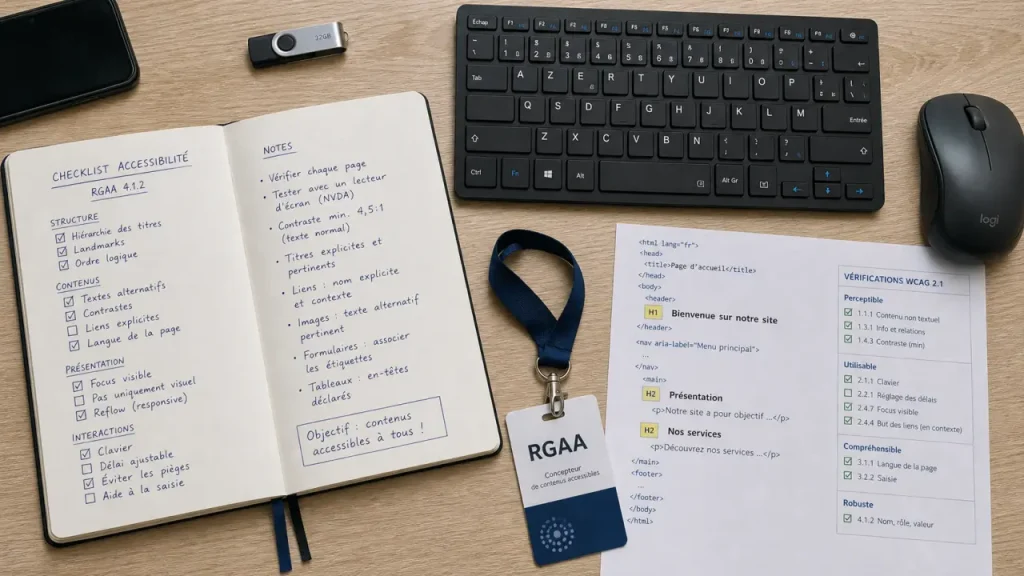 32GB
CHECKLIST ACCESSIBILITÉ
RGAA 4.1.2
STRUCTURE
Hiérarchie des titres
Landmarks
Ordre logique
CONTENUS
Textes alternatifs
Contrastes
Liens explicites
Langue de la page
PRÉSENTATION
Focus visible
Pas uniquement visuel
Reflow (responsive)
INTERACTIONS
Clavier
Délai ajustable
Éviter les pièges
Aide à la saisie
NOTES
• Vérifier chaque page
• Tester avec un lecteur
d'écran (NVDA)
• Contraste min. 4,5:1
(texte normal)
• Titres explicites et
pertinents
• Liens : nom explicite
et contexte
• Images : texte alternatif
pertinent
• Formulaires : associer
les étiquettes
• Tableaux : en-têtes
déclarés
Objectif : contenus
accessibles à tous !
Échap F1 F2
Tab A Z E R T Y U I O P
Q S D F G H J K L M Entrée
Z X C V B N
Ctrl Fn Alt Alt Gr
logi
RGAA
Concepteur
de contenus accessibles
RGAA
<html lang="fr">
<head>
<title>Page d'accueil</title>
</head>
<body>
<header>
H1 Bienvenue sur notre site
</header>
<nav aria-label="Menu principal">
...
</nav>
<main>
H2 Présentation
<p>Notre site a pour objectif ...</p>
H2 Nos services
<p>Découvrez nos services ...</p>
</main>
<footer>
...
</footer>
</body>
</html>
VÉRIFICATIONS WCAG 2.1
Perceptible
1.1.1 Contenu non textuel
1.3.1 Info et relations
1.4.3 Contraste (min)
Utilisable
2.1.1 Clavier
2.2.1 Réglage des délais
2.4.7 Focus visible
2.4.4 But des liens (en contexte)
Compréhensible
3.1.1 Langue de la page
3.2.2 Saisie
Robuste
4.1.2 Nom, rôle, valeur